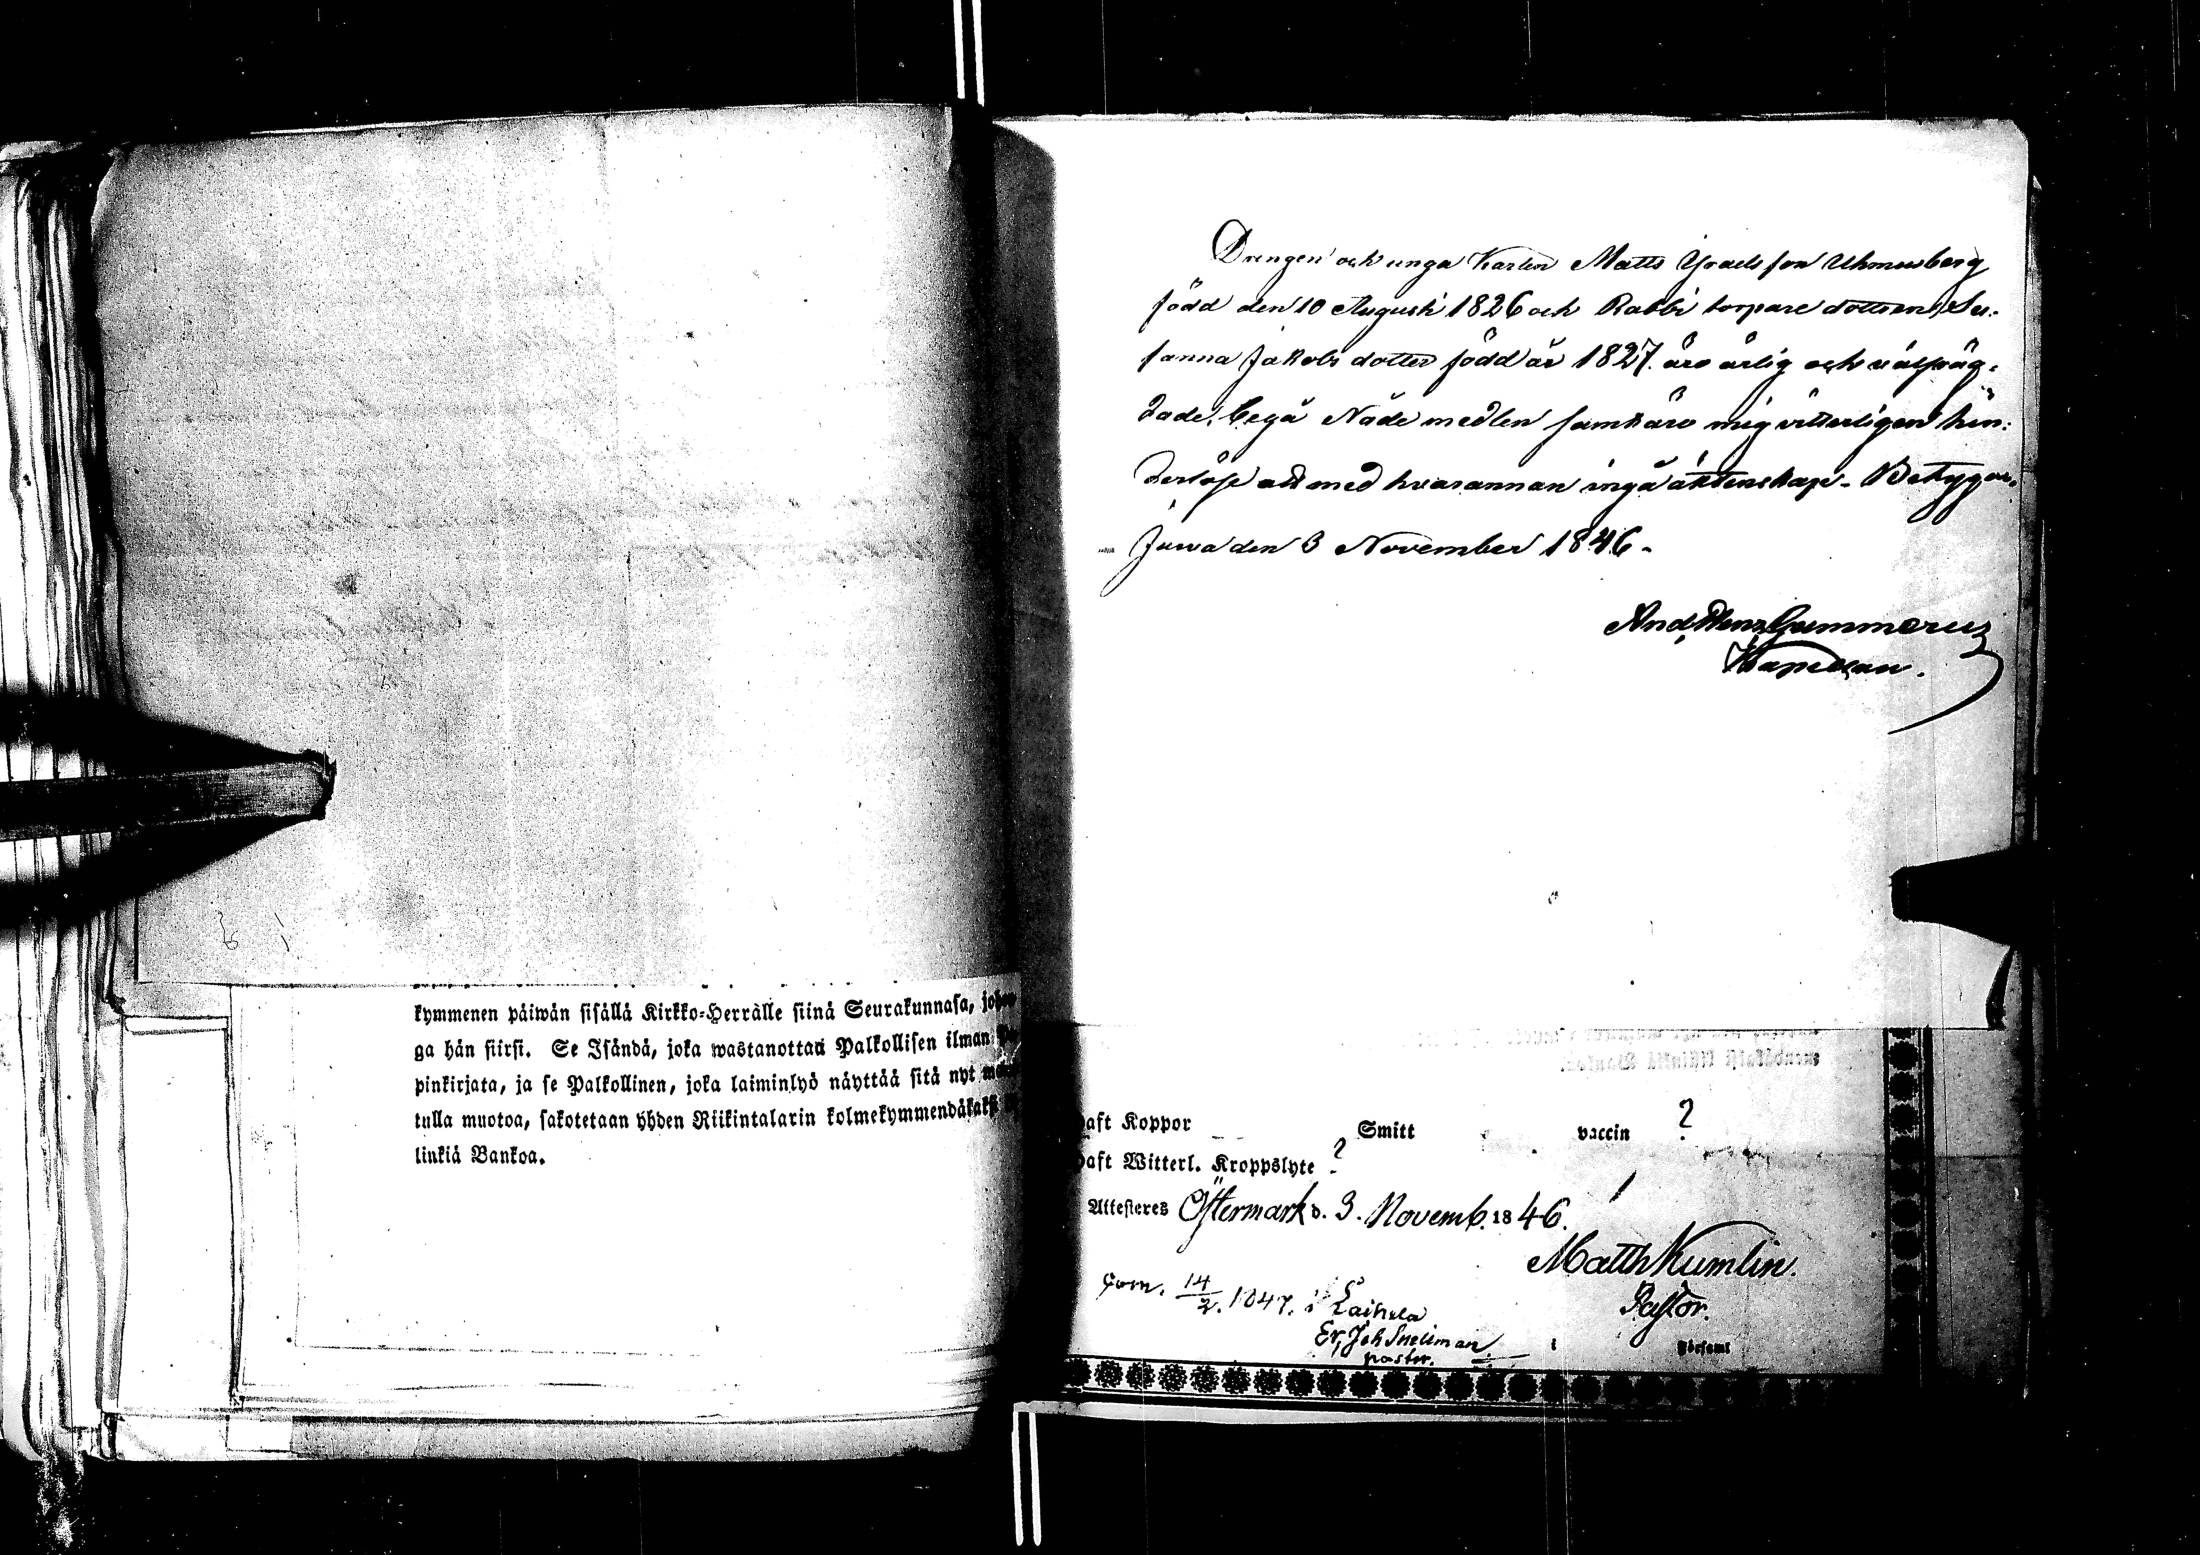 kymmenen päiwän sisällä Kirkko-Herralle siinä Seurakunnasa,
ga hän siirsi. Se Isändä, joka wastanottaa Palkollisen ilman
pinkirjata, ja se Palkollinen, joka laiminlyö näyttää sitä nyt
tulla muotoa, sakotetaan yhden Riikintalarin kolmekymmendäkaksi
linkiä Bankoa.
Drengen och unga Karlen Matts Israels son
född den 10 Augusti 1826 och Rabbi torpare dottren, Su-
sanna Jakobs dotter född år 1827. äro ärlig och välfräg-
dade, begå Nåde medlen samt äro mig vitterligen hin-
derlöse att med hvarannan ingå äktenskap. Betygar,
Jurva den 3 November 1846.
Gummerus
Kapellan.
haft Koppor Smitt vaccin ?
haft Witterl. Kroppslyte ?
Attesteres Östermark d. 3. Novemb. 1846.
Matth Kumlin.
Pastor.
14/2. 1847. i Laihela
Er. Joh Snellman
pastor.
Församl